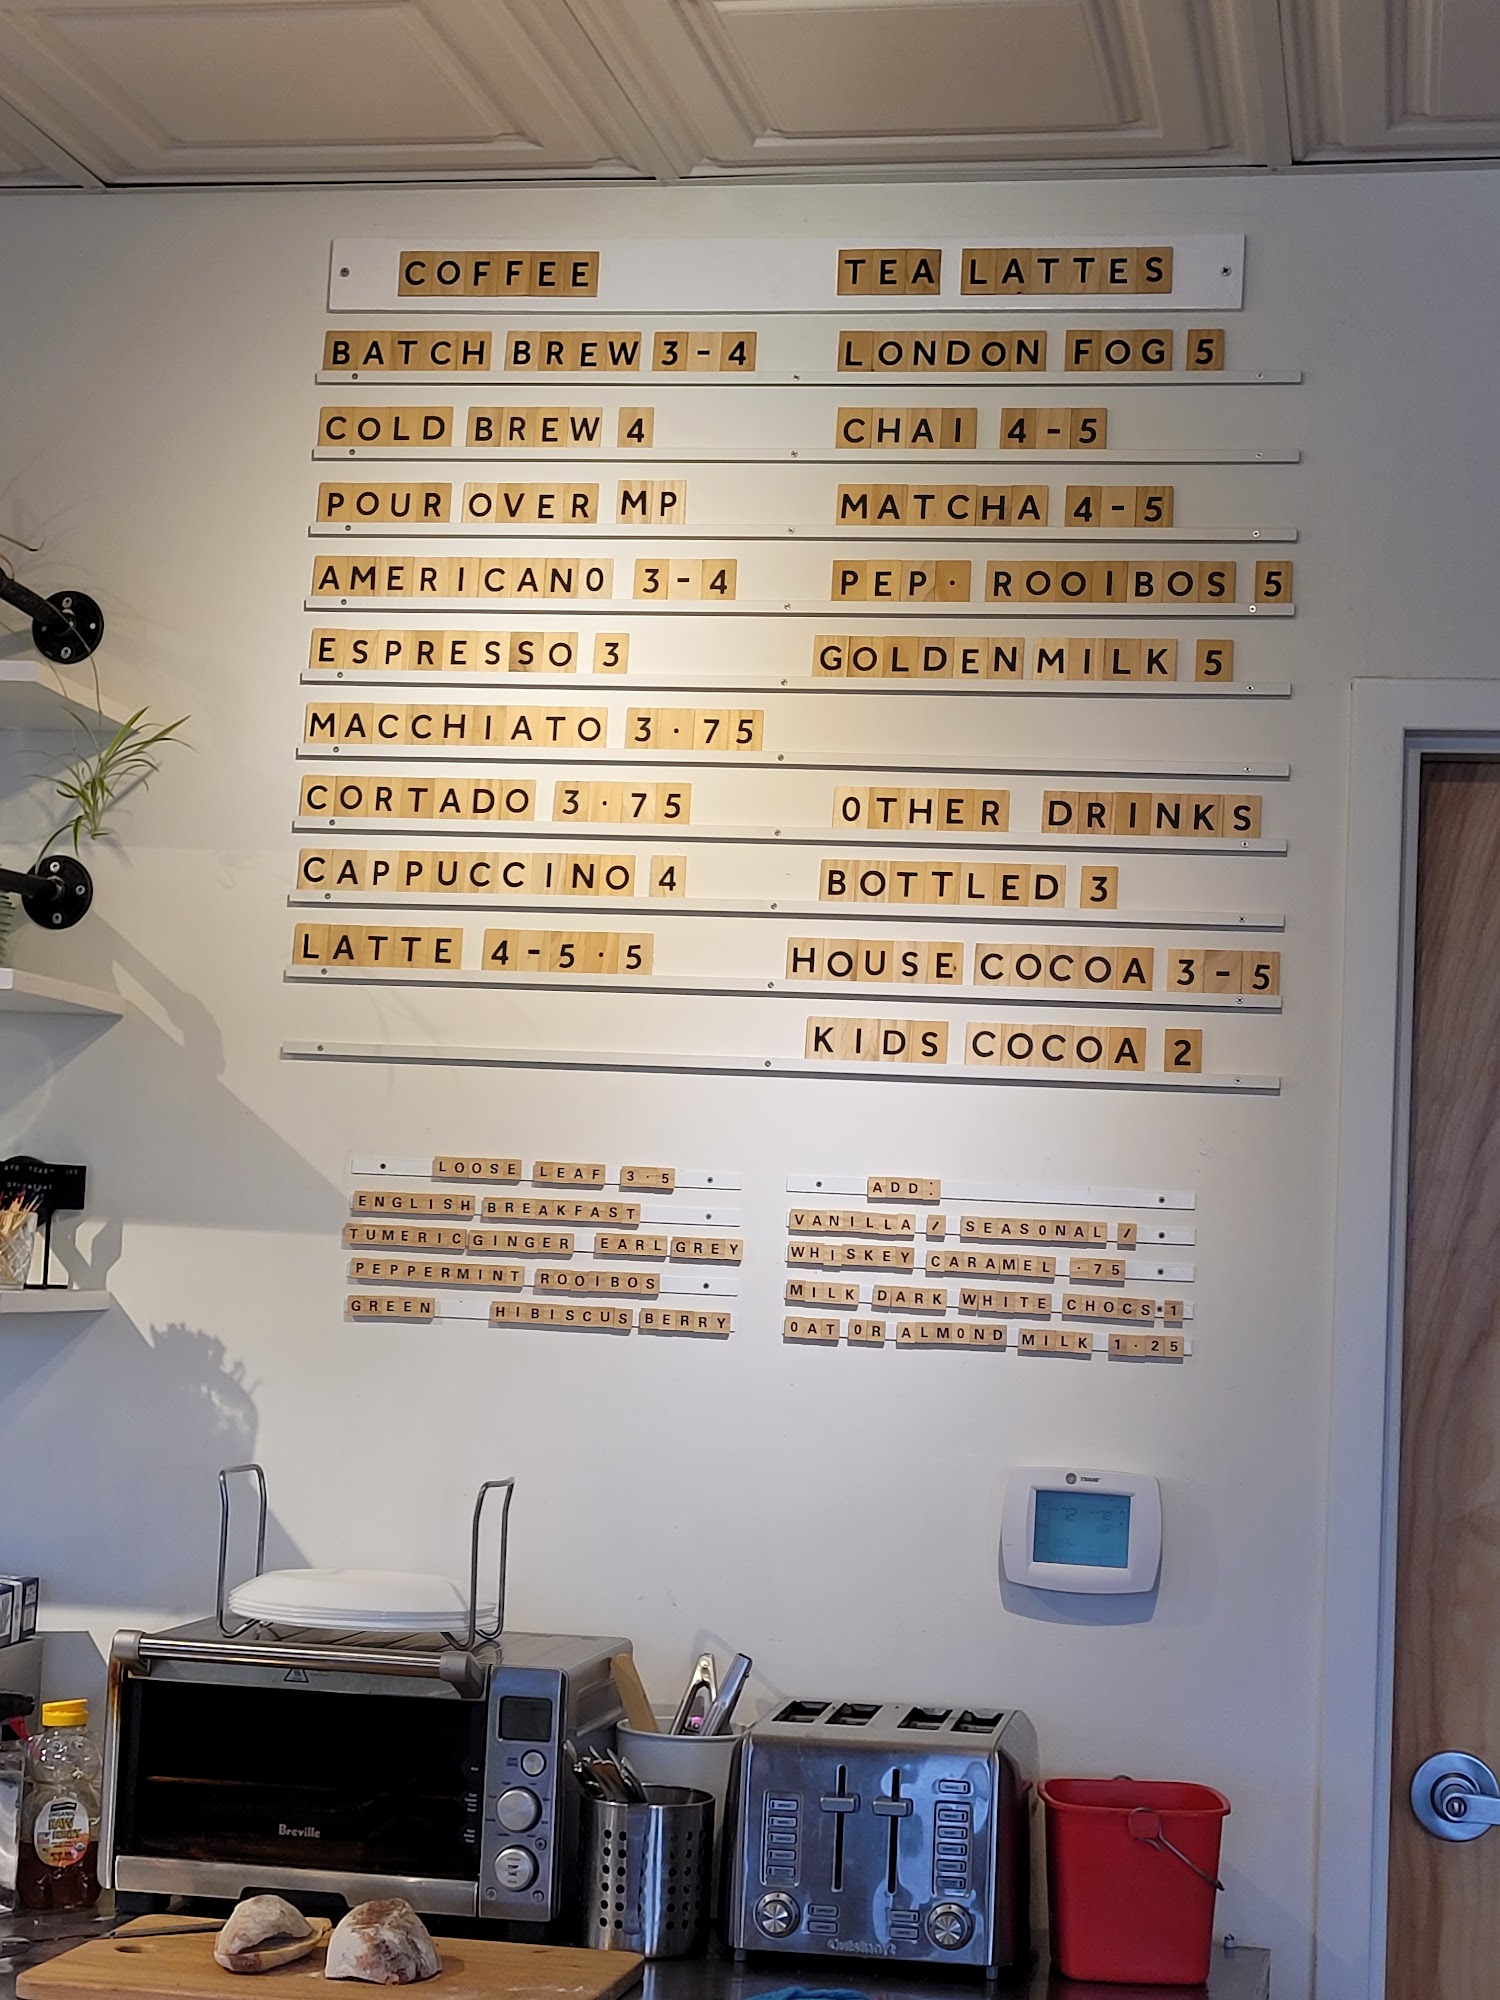 COFFEE
BATCH BREW 3-4
COLD BREW 4
POUR OVER MP
AMERICANO 3-4
ESPRESSO 3
MACCHIATO 3·75
CORTADO 3·75
CAPPUCCINO 4
LATTE 4-5·5
TEA LATTES
LONDON FOG 5
CHAI 4-5
MATCHA 4-5
PEP· ROOIBOS 5
GOLDEN MILK 5
OTHER DRINKS
BOTTLED 3
HOUSE COCOA 3-5
KIDS COCOA 2
LOOSE LEAF 3·5
ENGLISH BREAKFAST
TUMERIC GINGER EARL GREY
PEPPERMINT ROOIBOS
GREEN HIBISCUS BERRY
ADD:
VANILLA / SEASONAL /
WHISKEY CARAMEL ·75
MILK DARK WHITE CHOCS·1
OAT OR ALMOND MILK 1·25
TRANE
Breville
Cuisinart
ORGANIC
RAW